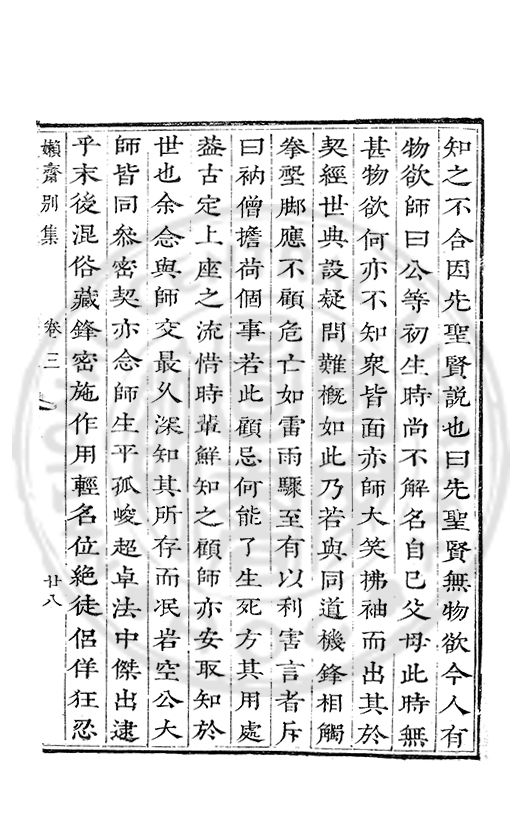 知之不合因先聖賢説也曰先聖賢無物欲今人有
物欲師曰公等初生時尚不解名自己父母此時無
甚物欲何亦不知衆皆面赤師大笑拂袖而出其於
契經世典設疑問難概如此乃若與同道機鋒相觸
拳踢脚應不顧危亡如雷雨驟至有以利害言者斥
曰衲僧擔荷個事若此顧忌何能了生死方其用處
葢古定上座之流惜時輩鮮知之顧師亦安取知於
世也余念與師交最久深知其所存而泯岩空公大
師皆同叅密契亦念師生平孤峻超卓法中傑出逮
乎末後混俗藏鋒密施作用輕名位絶徒侶佯狂忍
嬾齋别集 卷三 廿八